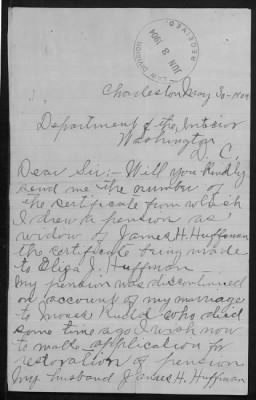 RECEIVED
JUN 8 1904
LAW DIVISION
Charleston May 30-1904
Department of the Interior
Washington
D. C.
Dear Sir:- Will you kindly
send me the number of
the certificate from which
I drew a pension as
widow of James H. Huffman
the certificate being made
to Eliza J. Huffman
My pension was discontinued
on account of my marriage
to Moses who died
some time ago I wish now
to make application for
restoration of pension
My husband James H. Huffman